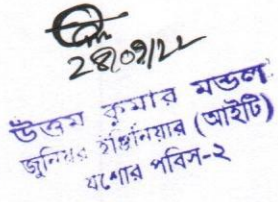 ২৪/০৭/২২
উত্তম কুমার মন্ডল
জুনিয়র ইঞ্জিনিয়ার (আইটি)
যশোর পবিস-২